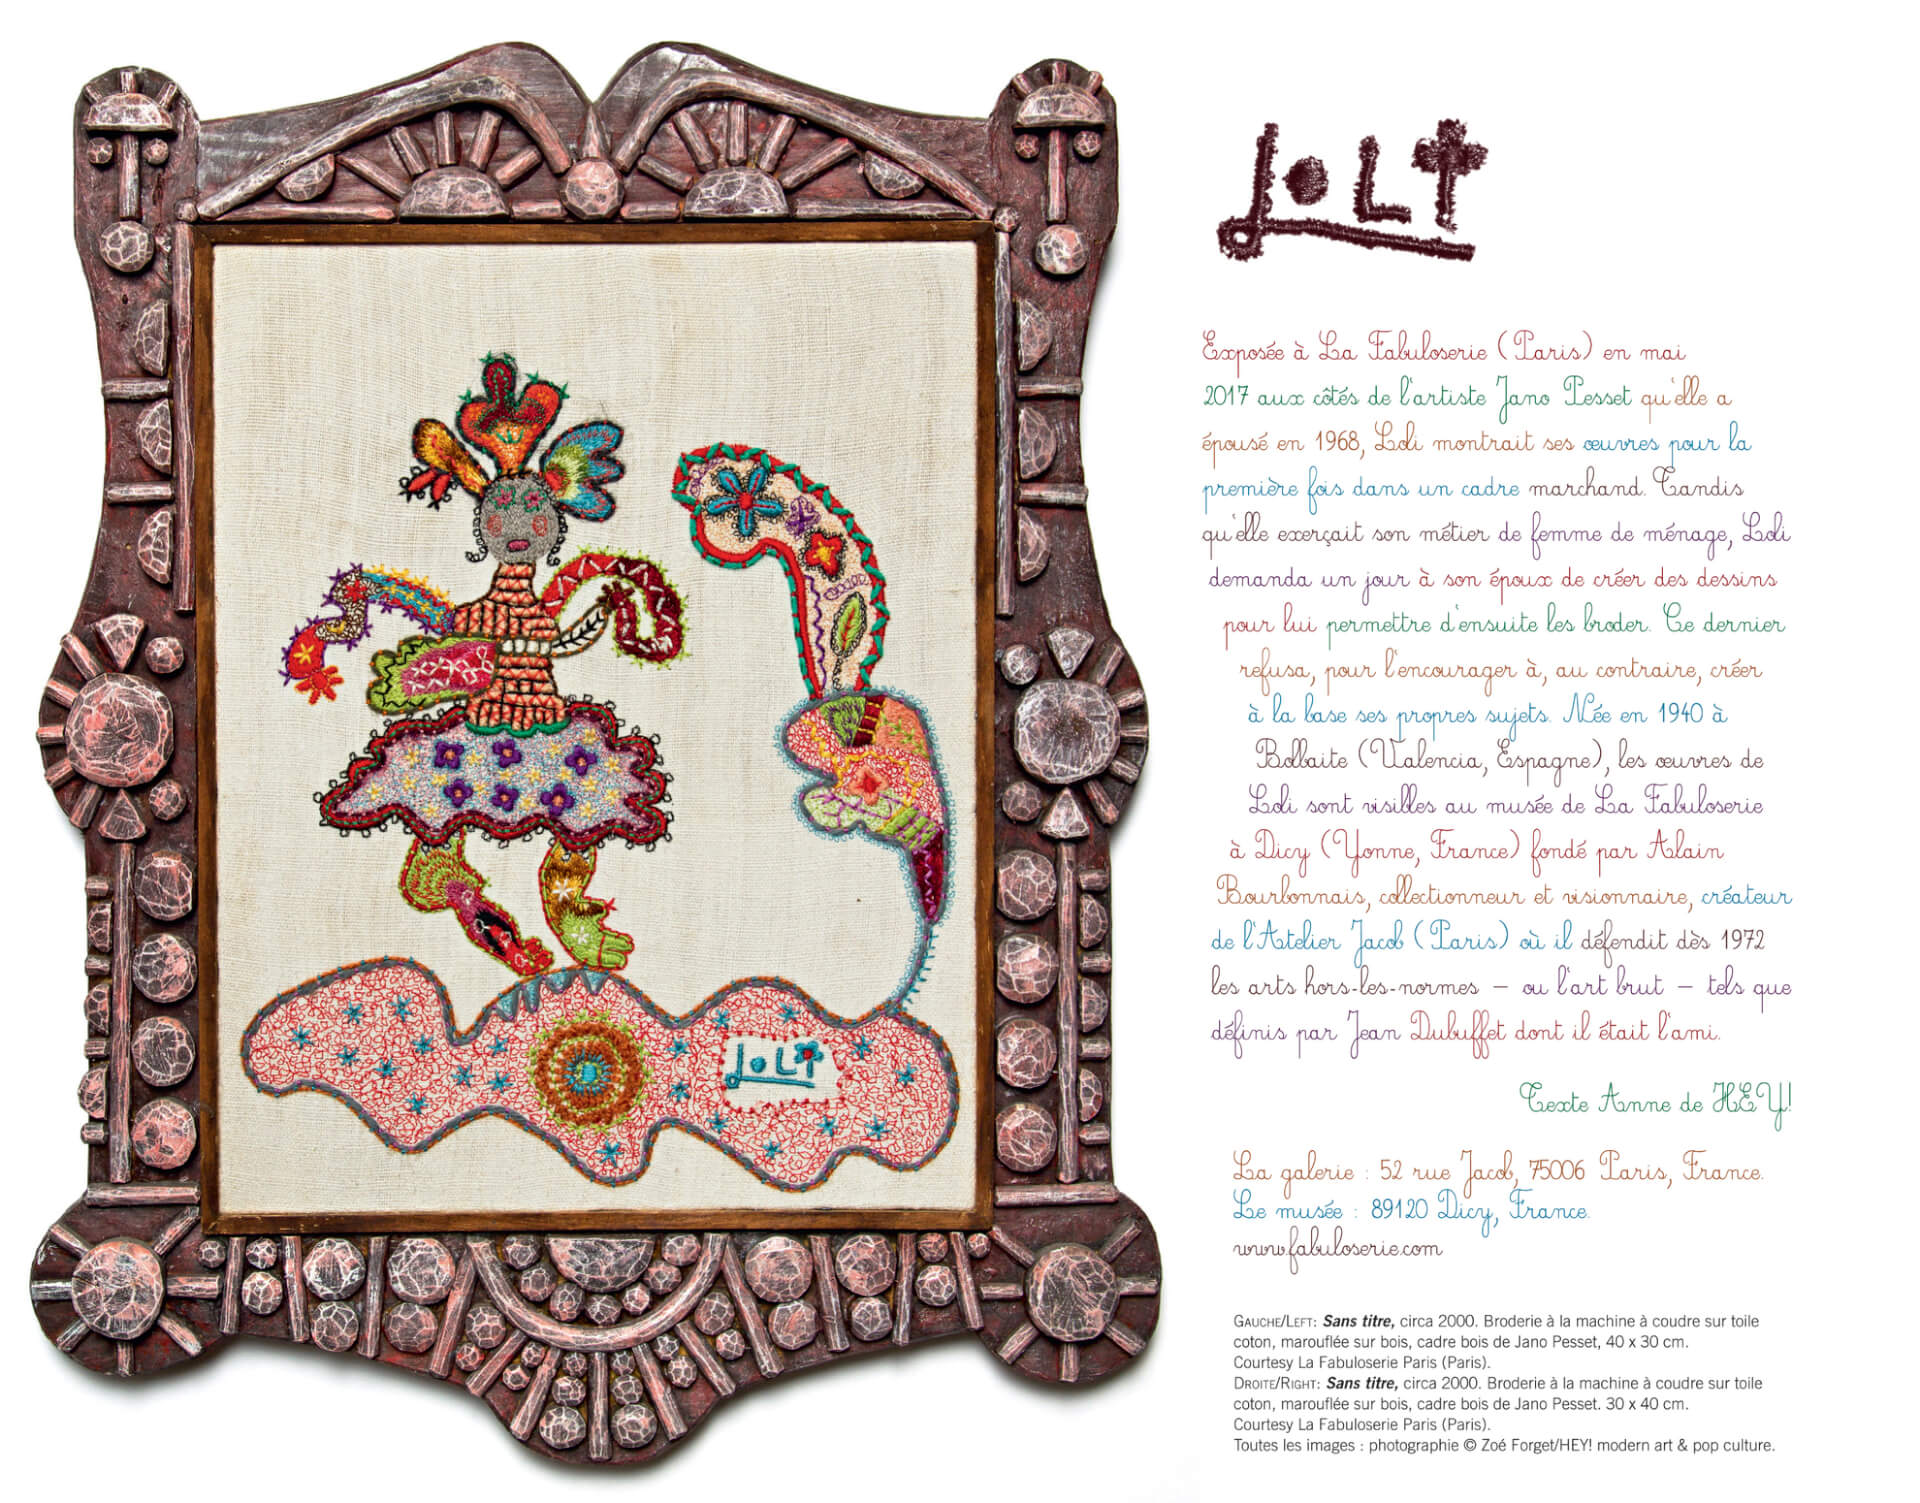 LOLI
LOLI
Exposée à La Fabuloserie (Paris) en mai
2017 aux côtés de l'artiste Jano Pesset qu'elle a
épousé en 1968, Loli montrait ses œuvres pour la
première fois dans un cadre marchand. Tandis
qu'elle exerçait son métier de femme de ménage, Loli
demanda un jour à son époux de créer des dessins
pour lui permettre d'ensuite les broder. Ce dernier
refusa, pour l'encourager à, au contraire, créer
à la base ses propres sujets. Née en 1940 à
Bolbaite (Valencia, Espagne), les œuvres de
Loli sont visilles au musée de La Fabuloserie
à Dicy (Yonne, France) fondé par Alain
Bourbonnais, collectionneur et visionnaire, créateur
de l'Atelier Jacob (Paris) où il défendit dès 1972
les arts hors-les-normes – ou l'art brut – tels que
définis par Jean Dubuffet dont il était l'ami.
Texte Anne de HEY!
La galerie : 52 rue Jacob, 75006 Paris, France.
Le musée : 89120 Dicy, France.
www.fabuloserie.com
GAUCHE/LEFT: Sans titre, circa 2000. Broderie à la machine à coudre sur toile
coton, marouflée sur bois, cadre bois de Jano Pesset, 40 x 30 cm.
Courtesy La Fabuloserie Paris (Paris).
DROITE/RIGHT: Sans titre, circa 2000. Broderie à la machine à coudre sur toile
coton, marouflée sur bois, cadre bois de Jano Pesset. 30 x 40 cm.
Courtesy La Fabuloserie Paris (Paris).
Toutes les images : photographie © Zoé Forget/HEY! modern art & pop culture.